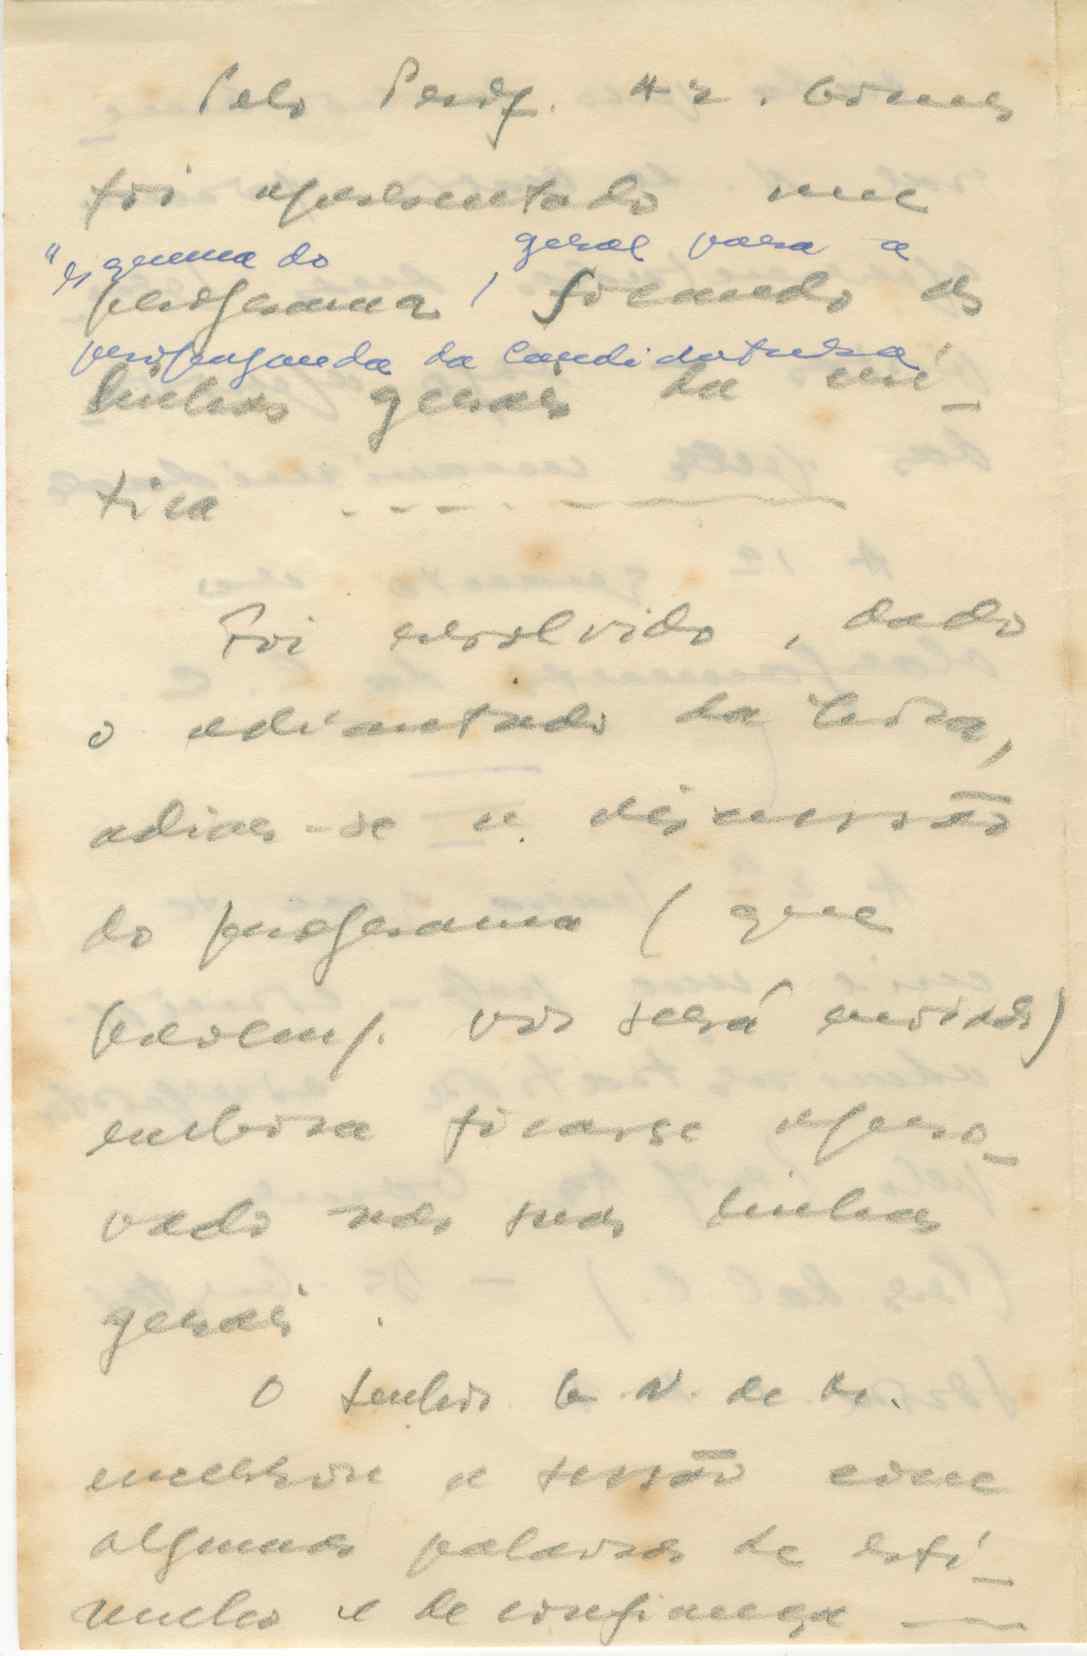 Pelo Prof. Az. Gomes
foi apresentado um
"esquema do geral para a
programa, focando as
propaganda da candidatura
linhas gerais da
tica
Foi resolvido, dado
o adiantado da hora,
adiar-se a discussão
do programa (que
vos será enviado)
embora ficasse apro-
vado nas suas linhas
gerais.
O senhor G. N. de M.
encerrou a sessão com
algumas palavras de estí-
mulo e de confiança